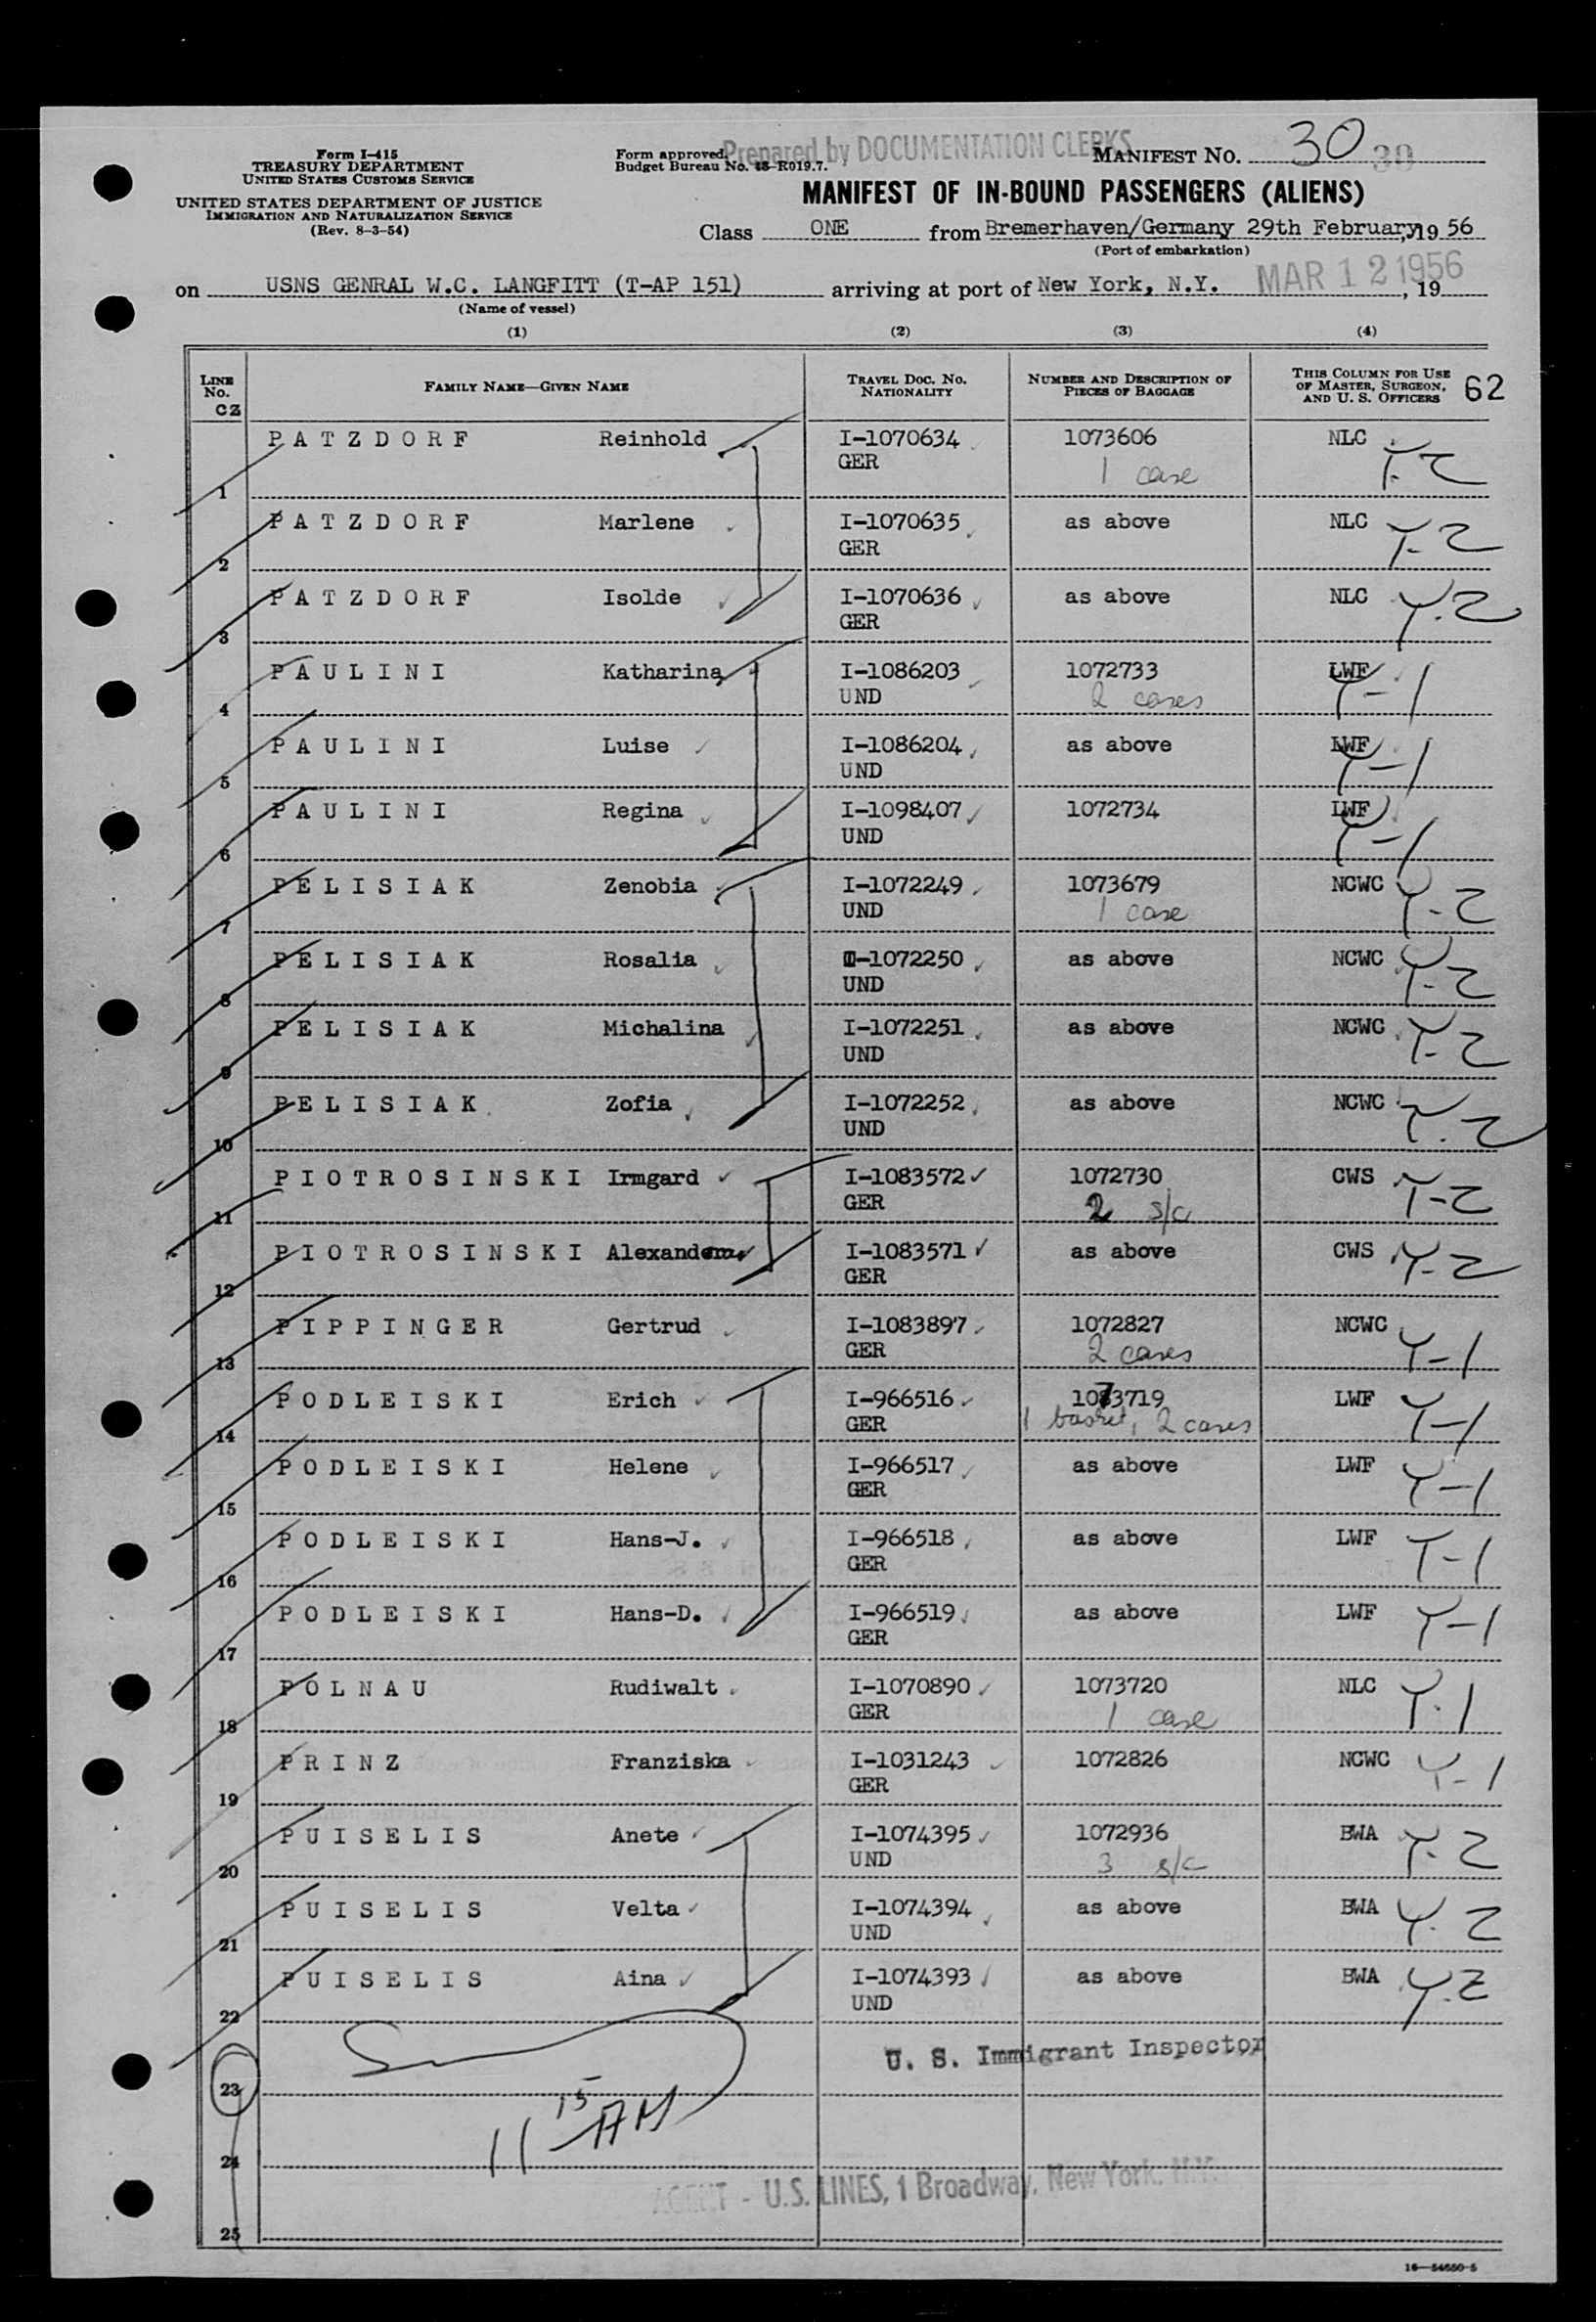 Form I-415
TREASURY DEPARTMENT
UNITED STATES CUSTOMS SERVICE
UNITED STATES DEPARTMENT OF JUSTICE
IMMIGRATION AND NATURALIZATION SERVICE
(Rev. 8-3-54)
Form approved.
Budget Bureau No. 43-R019.7.
Prepared by DOCUMENTATION CLERKS
MANIFEST NO. 30 30
MANIFEST OF IN-BOUND PASSENGERS (ALIENS)
Class ONE from Bremerhaven/Germany 29th February, 19 56
(Port of embarkation)
on USNS GENRAL W.C. LANGFITT (T-AP 151) arriving at port of New York, N.Y. MAR 12 1956, 19
(Name of vessel)
(1) (2) (3) (4)
LINE NO. FAMILY NAME—GIVEN NAME TRAVEL DOC. NO. NATIONALITY NUMBER AND DESCRIPTION OF PIECES OF BAGGAGE THIS COLUMN FOR USE OF MASTER, SURGEON, AND U. S. OFFICERS 62
CZ
1 PATZDORF Reinhold I-1070634 GER 1073606 1 case NLC Y-2
2 PATZDORF Marlene I-1070635 GER as above NLC Y-2
3 PATZDORF Isolde I-1070636 GER as above NLC Y-2
4 PAULINI Katharina I-1086203 UND 1072733 2 cases LWF Y-1
5 PAULINI Luise I-1086204 UND as above LWF Y-1
6 PAULINI Regina I-1098407 UND 1072734 LWF Y-1
7 PELISIAK Zenobia I-1072249 UND 1073679 1 case NCWC Y-2
8 PELISIAK Rosalia I-1072250 UND as above NCWC Y-2
9 PELISIAK Michalina I-1072251 UND as above NCWC Y-2
10 PELISIAK Zofia I-1072252 UND as above NCWC Y-2
11 PIOTROSINSKI Irmgard I-1083572 GER 1072730 2 s/c CWS Y-2
12 PIOTROSINSKI I-1083571 GER as above CWS Y-2
13 PIPPINGER Gertrud I-1083897 GER 1072827 2 cases NCWC Y-1
14 PODLEISKI Erich I-966516 GER 1073719 1 basket, 2 cases LWF Y-1
15 PODLEISKI Helene I-966517 GER as above LWF Y-1
16 PODLEISKI Hans-J. I-966518 GER as above LWF Y-1
17 PODLEISKI Hans-D. I-966519 GER as above LWF Y-1
18 POLNAU Rudiwalt I-1070890 GER 1073720 1 case NLC Y-1
19 PRINZ Franziska I-1031243 GER 1072826 NCWC Y-1
20 PUISELIS Anete I-1074395 UND 1072936 3 s/c BWA Y-2
21 PUISELIS Velta I-1074394 UND as above BWA Y-2
22 PUISELIS Aina I-1074393 UND as above BWA Y-2
U. S. Immigrant Inspector
23
11 15 AM
24
AGENT - U.S. LINES, 1 Broadway, New York, N.Y.
25
16—54650-5